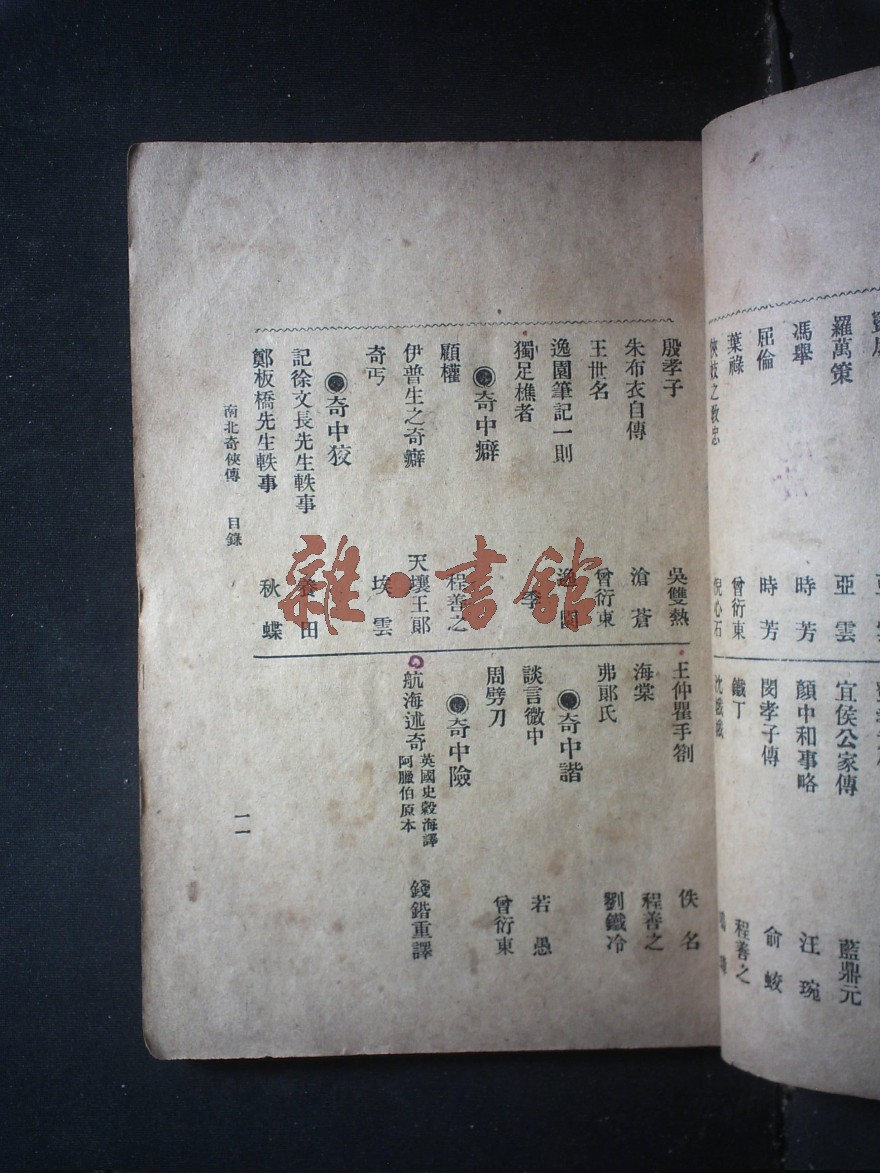 羅萬策 亞雲
馮舉 時芳
屈倫 時芳
葉祿 曾衍東
俠妓之教忠 倪心石
宜侯公家傳 藍鼎元
顏中和事略 汪琬
閔孝子傳 俞蛟
鐵丁 程善之
殷孝子 吳雙熱
朱布衣自傳 滄蒼
王世名 曾衍東
逸園筆記一則 逸園
獨足樵者 季
●奇中癖
顧權 程善之
伊普生之奇癖 天壤王郎
奇丐 埃雲
●奇中狡
記徐文長先生軼事 田
鄭板橋先生軼事 秋蝶
王仲瞿手劄 佚名
海棠 程善之
弗郎氏 劉鐵冷
●奇中諧
談言微中 若愚
周劈刀 曾衍東
●奇中險
航海述奇 英國史穀海譯 阿臘伯原本 錢鍇重譯
南北奇俠傳 目錄
二
雜·書館